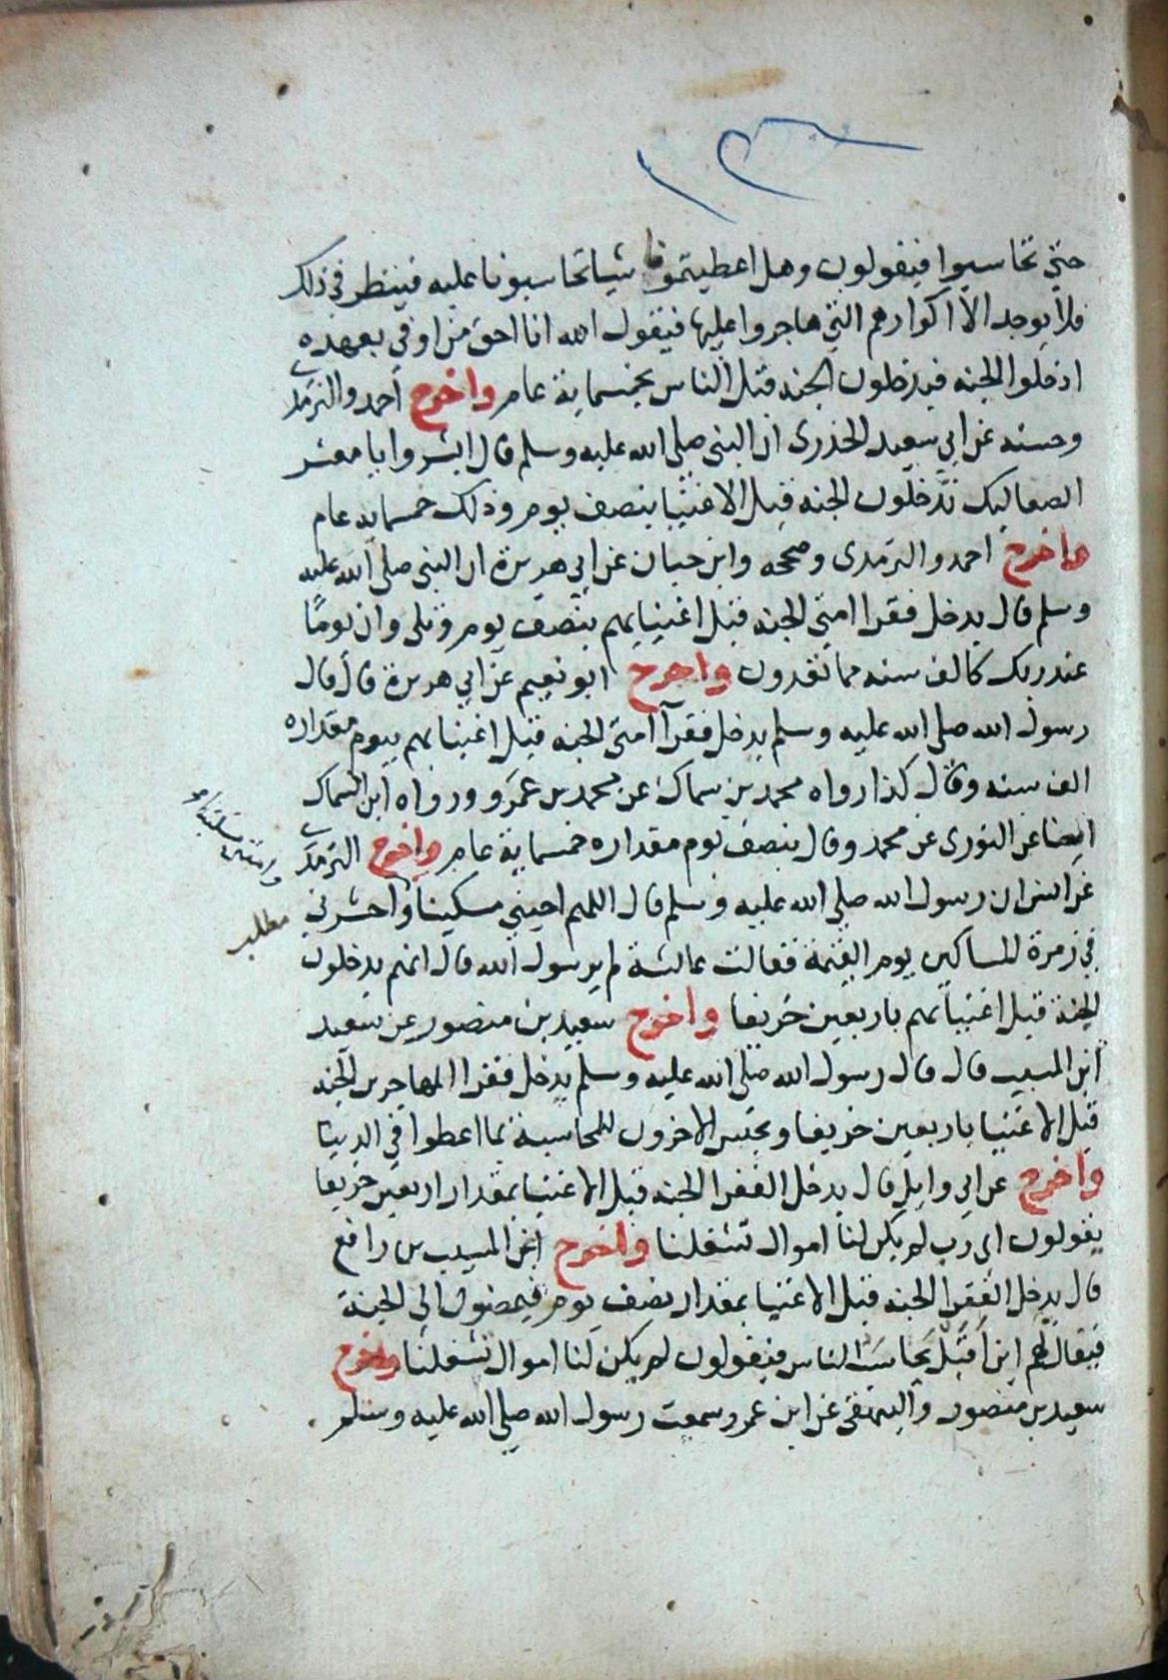 حتي تحاسبوا فيقولون وهل اعطيتمونا شيا تحاسبونا عليه فينظر في ذلك
فلا يوجد الا اكوارهم التي هاجروا عليها فيقول الله انا احق من اوفي بعهده
ادخلوا الجنه فيدخلون الجنه قبل الناس بخمسماية عام واخرج احمد والترمذي
وحسنه عن ابي سعيد الخدري ان النبي صلى الله عليه وسلم قال ابشروا يا معشر
الصعاليك تدخلون الجنه قبل الاغنيا بنصف يوم وذلك خمسمايه عام
واخرج احمد والترمدى وصححه وابن حبان عن ابي هريرة ان النبي صلى الله عليه
وسلم قال يدخل فقرا امتي الجنه قبل اغنيايهم بنصف يوم وتلى وان يومًا
عند ربك كالف سنه مما تعدون واخرج ابو نعيم عن ابي هريرة قال قال
رسول الله صلى الله عليه وسلم يدخل فقرآ امتي الجنه قبل اغنيايهم بيوم مقداره
الف سنه وقال كذا رواه محمد بن سماك عن محمد بن عمرو ورواه ابن السماك
ايضا عن الثورى عن محمد وقال بنصف يوم مقداره خمسماية عام واخرج الترمذي
عن انس ان رسول الله صلى الله عليه وسلم قال اللهم احيني مسكينا واحشرني
مطلب
في زمرة المساكين يوم القيمة فقالت عائشة لم يرسول الله قال انهم يدخلون
الجنة قبل اغنيائهم باربعين خريفا واخرج سعيد بن منصور عن سعيد
ابن المسيب قال قال رسول الله صلى الله عليه وسلم يدخل فقرا المهاجرين الجنه
قبل الاغنيا باربعين خريفا ويحتبس الاخرون للمحاسبة بما اعطوا في الدنيا
واخرج عن ابي وايل قال يدخل الفقرا الجنه قبل الاغنيا بمقدار اربعين خريفا
يقولون اي رب لم يكن لنا اموال تشغلنا واخرج عن المسيب بن رافع
قال يدخل الفقرا الجنه قبل الاغنيا بمقدار نصف يوم فيمضون الى الجنة
فيقال لهم اين قبل يحاسب الناس فيقولون لم يكن لنا اموال تشغلنا واخرج
سعيد بن منصور والبيهقي عن ابن عمرو سمعت رسول الله صلى الله عليه وسلم